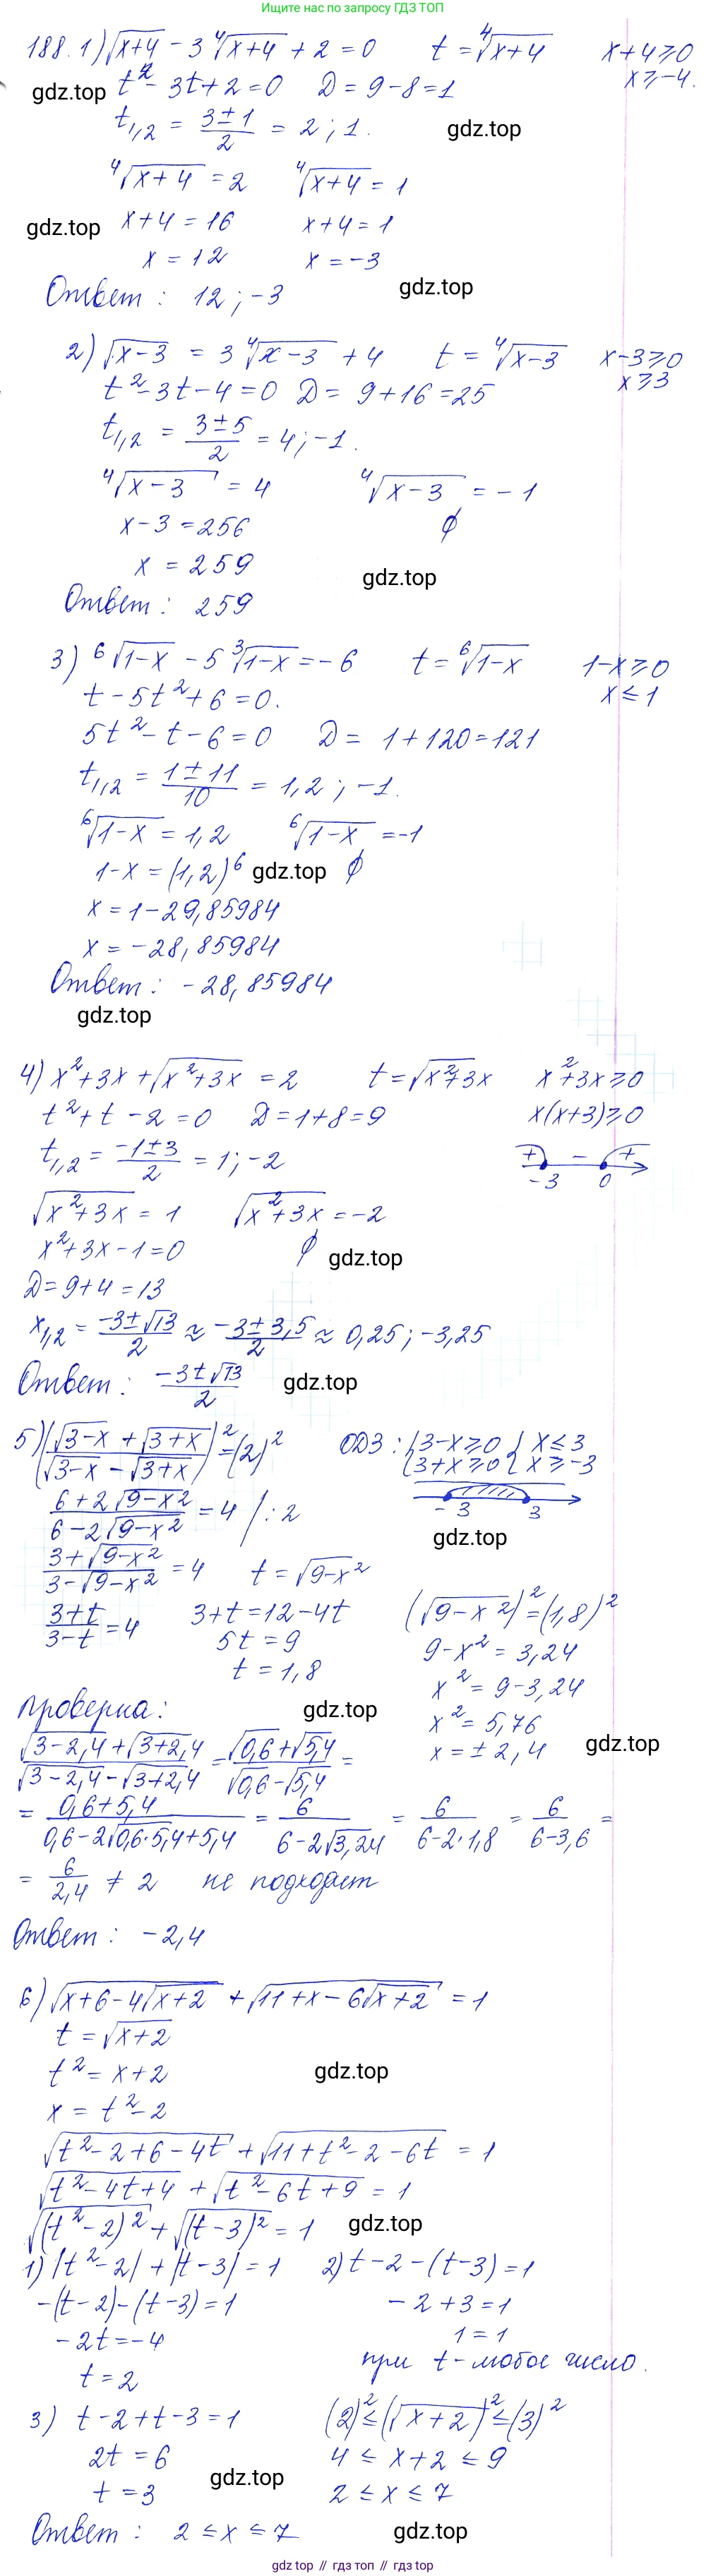 Ищите нас по запросу ГДЗ ТОП
188. 1) √(x+4) - 3 ⁴√(x+4) + 2 = 0   t = ⁴√(x+4)   x+4 ≥ 0
gdz.top   t² - 3t + 2 = 0   D = 9 - 8 = 1   x ≥ -4.
t₁,₂ = (3±1)/2 = 2; 1.   gdz.top
⁴√(x+4) = 2   ⁴√(x+4) = 1
gdz.top   x+4 = 16   x+4 = 1
x = 12   x = -3
Ответ: 12; -3   gdz.top
2) √(x-3) = 3 ⁴√(x-3) + 4   t = ⁴√(x-3)   x-3 ≥ 0
t² - 3t - 4 = 0   D = 9 + 16 = 25   x ≥ 3
t₁,₂ = (3±5)/2 = 4; -1.
⁴√(x-3) = 4   ⁴√(x-3) = -1
x-3 = 256   ∅
x = 259   gdz.top
Ответ: 259
3) ⁶√(1-x) - 5 ³√(1-x) = -6   t = ⁶√(1-x)   1-x ≥ 0
t - 5t² + 6 = 0.   x ≤ 1
5t² - t - 6 = 0   D = 1 + 120 = 121
t₁,₂ = (1±11)/10 = 1,2; -1.
⁶√(1-x) = 1,2   ⁶√(1-x) = -1
1-x = (1,2)⁶   gdz.top   ∅
x = 1 - 29,85984
x = -28,85984
Ответ: -28,85984
gdz.top
4) x² + 3x + √(x²+3x) = 2   t = √(x²+3x)   x² + 3x ≥ 0
t² + t - 2 = 0   D = 1 + 8 = 9   x(x+3) ≥ 0
t₁,₂ = (-1±3)/2 = 1; -2   + - +
-3 0
√(x²+3x) = 1   √(x²+3x) = -2
x² + 3x - 1 = 0   ∅   gdz.top
D = 9 + 4 = 13
x₁,₂ = (-3±√13)/2 ≈ (-3±3,5)/2 ≈ 0,25; -3,25
Ответ: (-3±√13)/2   gdz.top
5) ((√(3-x) + √(3+x))/(√(3-x) - √(3+x)))² = (2)²   ОДЗ: { 3-x ≥ 0 { x ≤ 3
{ 3+x ≥ 0 { x ≥ -3
(6 + 2√(9-x²))/(6 - 2√(9-x²)) = 4 /:2   -3 3
gdz.top
(3 + √(9-x²))/(3 - √(9-x²)) = 4   t = √(9-x²)
(3+t)/(3-t) = 4   3 + t = 12 - 4t   (√(9-x²))² = (1,8)²
5t = 9   9 - x² = 3,24
t = 1,8   x² = 9 - 3,24
Проверка:   gdz.top   x² = 5,76
x = ±2,4   gdz.top
(√(3-2,4) + √(3+2,4))/(√(3-2,4) - √(3+2,4)) = (√0,6 + √5,4)/(√0,6 - √5,4) =
= (0,6 + 5,4)/(0,6 - 2√(0,6·5,4) + 5,4) = 6/(6 - 2√3,24) = 6/(6 - 2·1,8) = 6/(6 - 3,6) =
= 6/2,4 ≠ 2   не подходит
Ответ: -2,4
6) √(x+6-4√(x+2)) + √(11+x-6√(x+2)) = 1
t = √(x+2)
t² = x+2   gdz.top
x = t² - 2
√(t²-2+6-4t) + √(11+t²-2-6t) = 1
√(t²-4t+4) + √(t²-6t+9) = 1
√((t²-2)²) + √((t-3)²) = 1   gdz.top
1) |t²-2| + |t-3| = 1   2) t-2-(t-3) = 1
-(t-2)-(t-3) = 1   -2+3 = 1
-2t = -4   1 = 1
t = 2   при t - любое число.
3) t-2+t-3 = 1   (2)² ≤ (√(x+2))² ≤ (3)²
2t = 6   4 ≤ x+2 ≤ 9
t = 3   gdz.top   2 ≤ x ≤ 7
Ответ: 2 ≤ x ≤ 7   gdz.top
gdz top // гдз топ // gdz.top